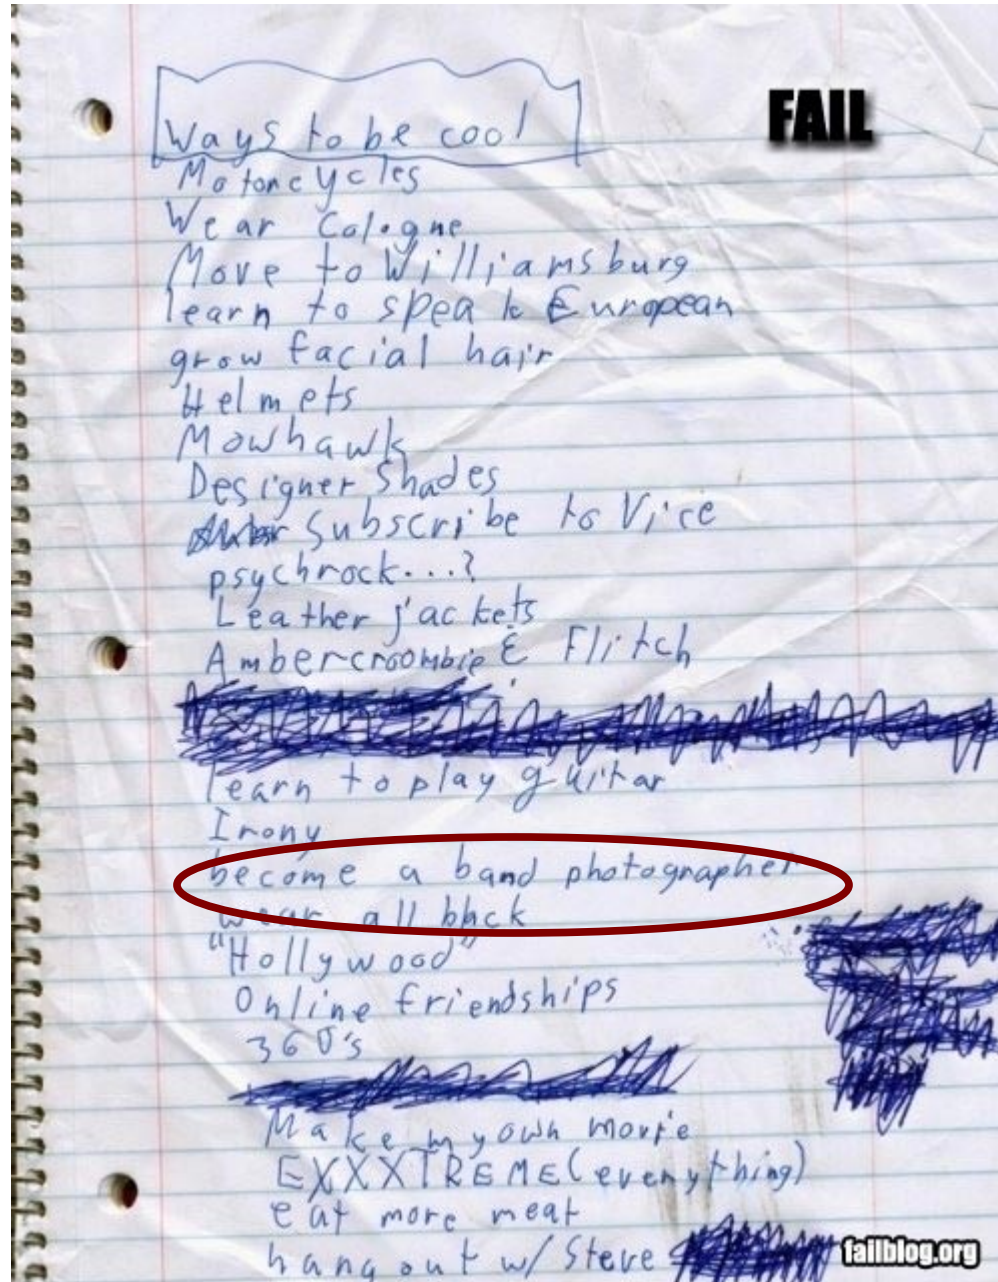 FAIL
Ways to be cool
Motorcycles
Wear Cologne
Move to Williamsburg
learn to speak European
grow facial hair
Helmets
Mowhawk
Designer Shades
Subscribe to Vice
psychrock...?
Leather jackets
Ambercroombie & Flitch
learn to play guitar
Irony
become a band photographer
wear all black
"Hollywood"
Online friendships
360's
Make my own movie
EXXXTREME (everything)
eat more meat
hang out w/ Steve
failblog.org